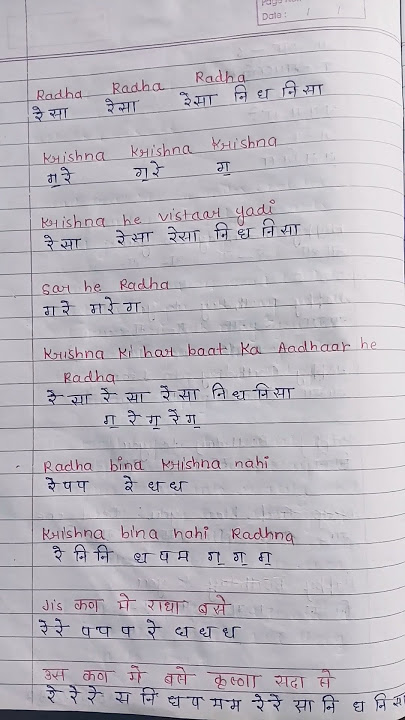 Date: / /
Radha Radha Radha
रेसा रेसा रेसा नि ध नि सा
Krishna Krishna Krishna
ग॒ रे ग॒ रे ग॒
Krishna he vistaar yadi
रे सा रे सा रेसा नि ध नि सा
Sar he Radha
ग रे ग रे ग
Krishna Ki har baat Ka Aadhaar he
Radha
रे सा रे सा रे सा नि ध नि सा
ग॒ रे ग॒ रे ग॒
Radha bina Krishna nahi
रे प प रे ध ध
Krishna bina nahi Radhna
रे नि नि ध प म ग॒ ग॒ ग॒
Jis कण मे राधा बसे
रे रे प प प रे ध ध ध
उस कण मे बसे कृष्णा सदा से
रे रे रे स नि ध प म म रे रे सा नि ध नि सा